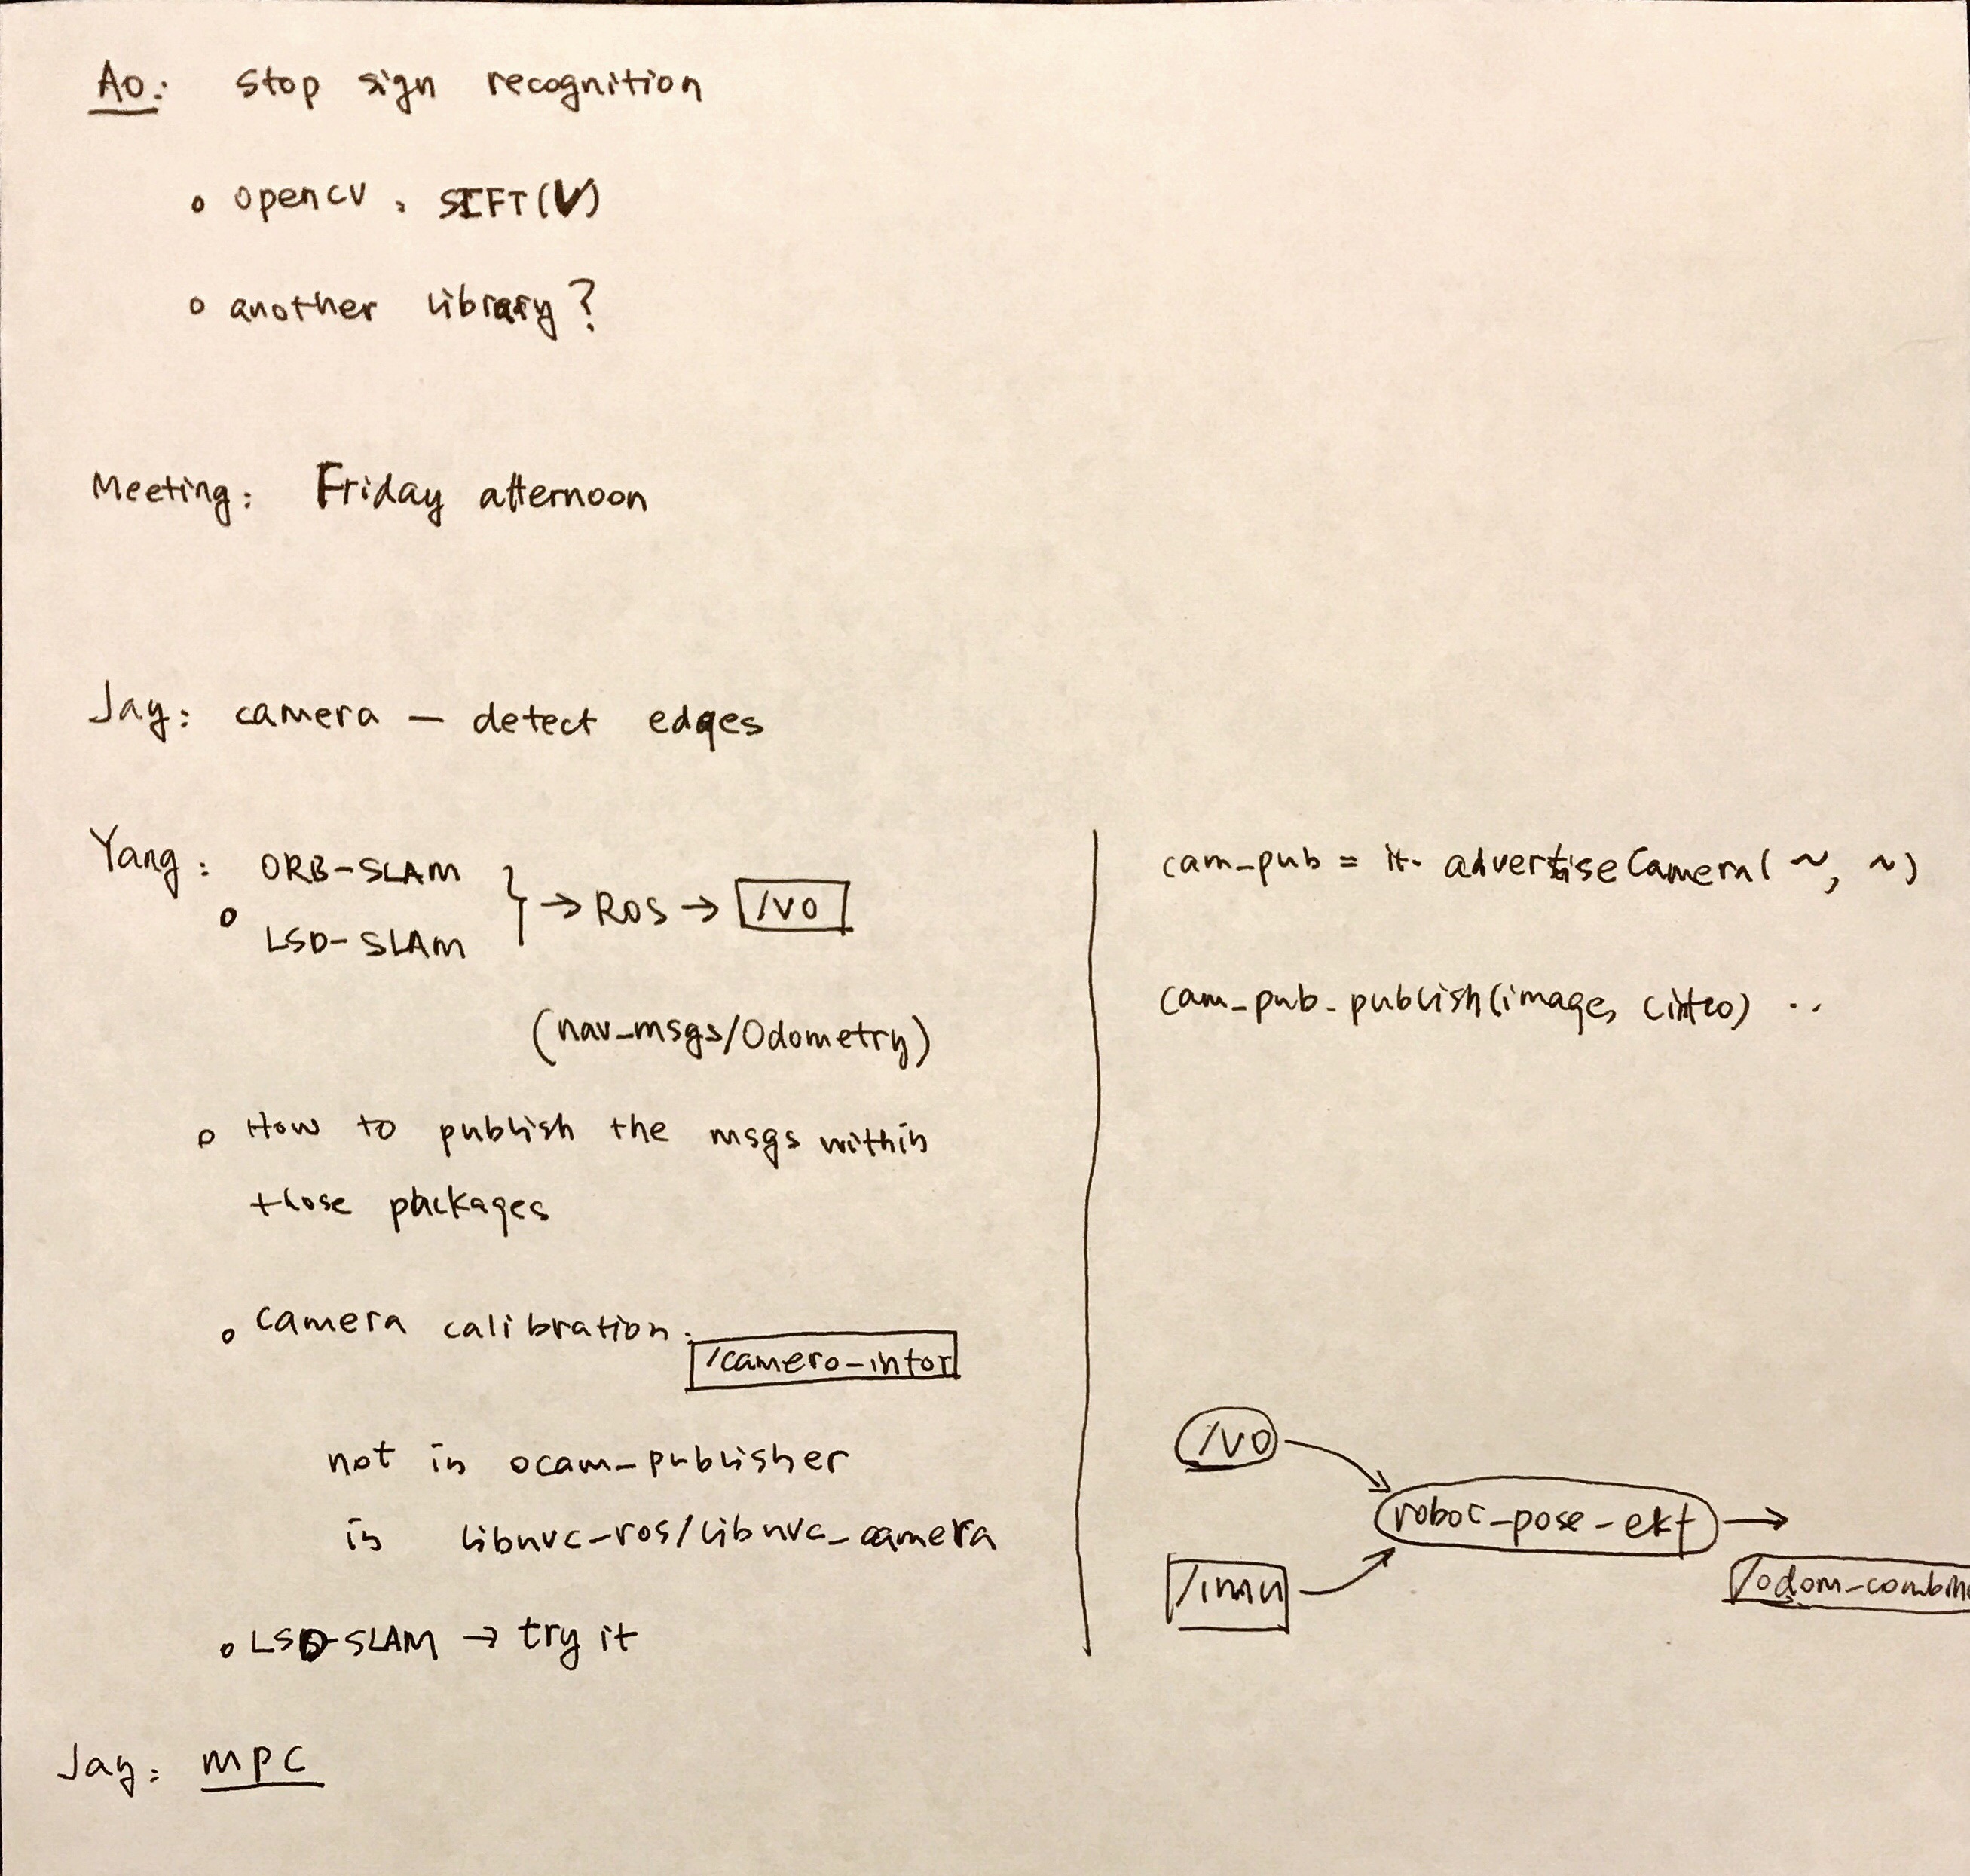 Ao: Stop sign recognition
opencv : SIFT(V)
another library?
Meeting: Friday afternoon
Jay: camera — detect edges
Yang: ORB-SLAM
LSD-SLAM
→ ROS → /vo
(nav_msgs/Odometry)
How to publish the msgs within
those packages
camera calibration:
/camera-infor
not in ocam_publisher
in libuvc-ros/libuvc_camera
LSD-SLAM → try it
Jay: MPC
cam_pub = it. advertiseCamera( ~, ~)
cam_pub.publish(image, cinfo) ..
/vo
robot_pose_ekf →
/imu
/odom_combin